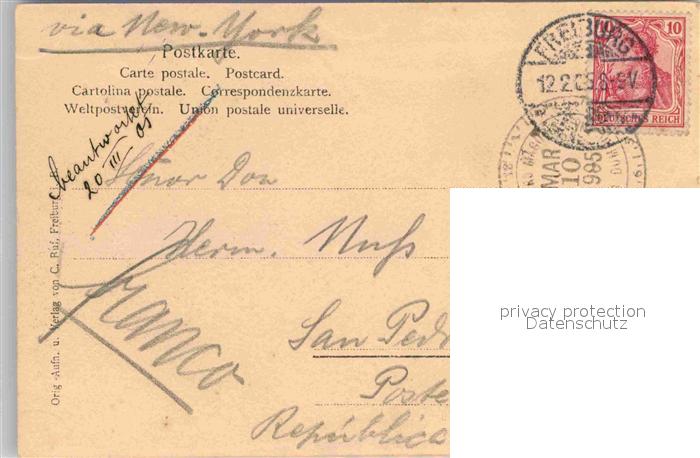 via New-York
Postkarte.
Carte postale. Postcard.
Cartolina postale. Correspondenzkarte.
Weltpostverein. Union postale universelle.
10
DEUTSCHES REICH
FREIBURG
12.2.05.
MAR
10
1905
beantwortet
20 III 05
Señor Don
Herm. Nuss
franco
San Pedr
Poste
República
Orig.-Aufn. u. Verlag von C. Ruf, Freibur
privacy protection
Datenschutz